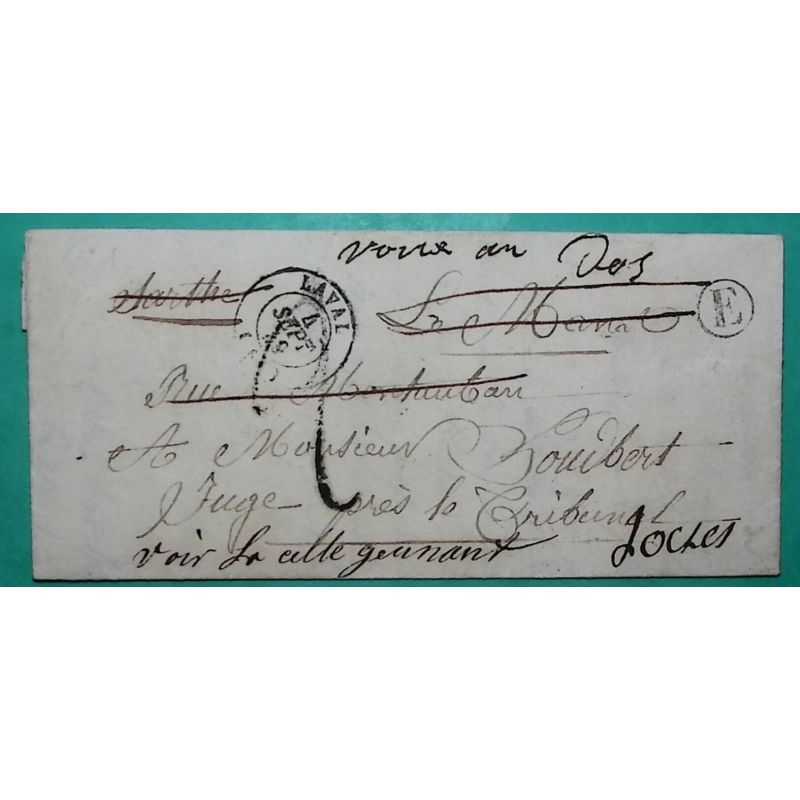 voire au Dos
Sarthe LAVAL 4 SEPT Le Mans E
Rue Montauban
A Monsieur Joubert
Juge près le Tribunal
voir La
Loches